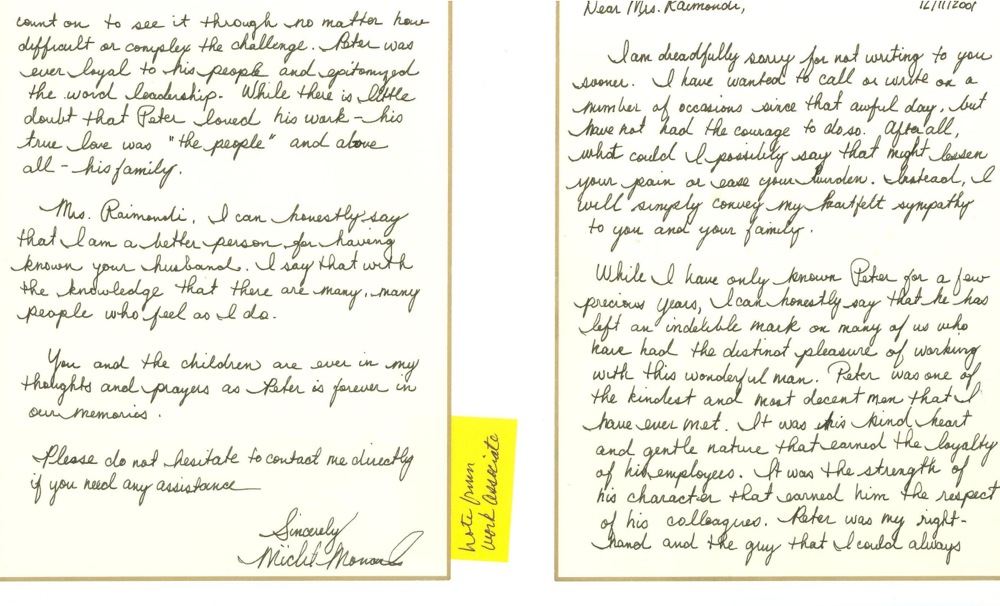 Dear Mrs. Raimondi, 12/11/2001
I am dreadfully sorry for not writing to you
sooner. I have wanted to call or write on a
number of occasions since that awful day, but
have not had the courage to do so. After all,
what could I possibly say that might lessen
your pain or ease your burden. Instead, I
will simply convey my heartfelt sympathy
to you and your family.
While I have only known Peter for a few
precious years, I can honestly say that he has
left an indelible mark on many of us who
have had the distinct pleasure of working
with this wonderful man. Peter was one of
the kindest and most decent men that I
have ever met. It was his kind heart
and gentle nature that earned the loyalty
of his employees. It was the strength of
his character that earned him the respect
of his colleagues. Peter was my right-
hand and the guy that I could always
count on to see it through no matter how
difficult or complex the challenge. Peter was
ever loyal to his people and epitomized
the word leadership. While there is little
doubt that Peter loved his work - his
true love was "the people" and above
all - his family.
Mrs. Raimondi, I can honestly say
that I am a better person for having
known your husband. I say that with
the knowledge that there are many, many
people who feel as I do.
You and the children are ever in my
thoughts and prayers as Peter is forever in
our memories.
Please do not hesitate to contact me directly
if you need any assistance
Sincerely
note from
work associate